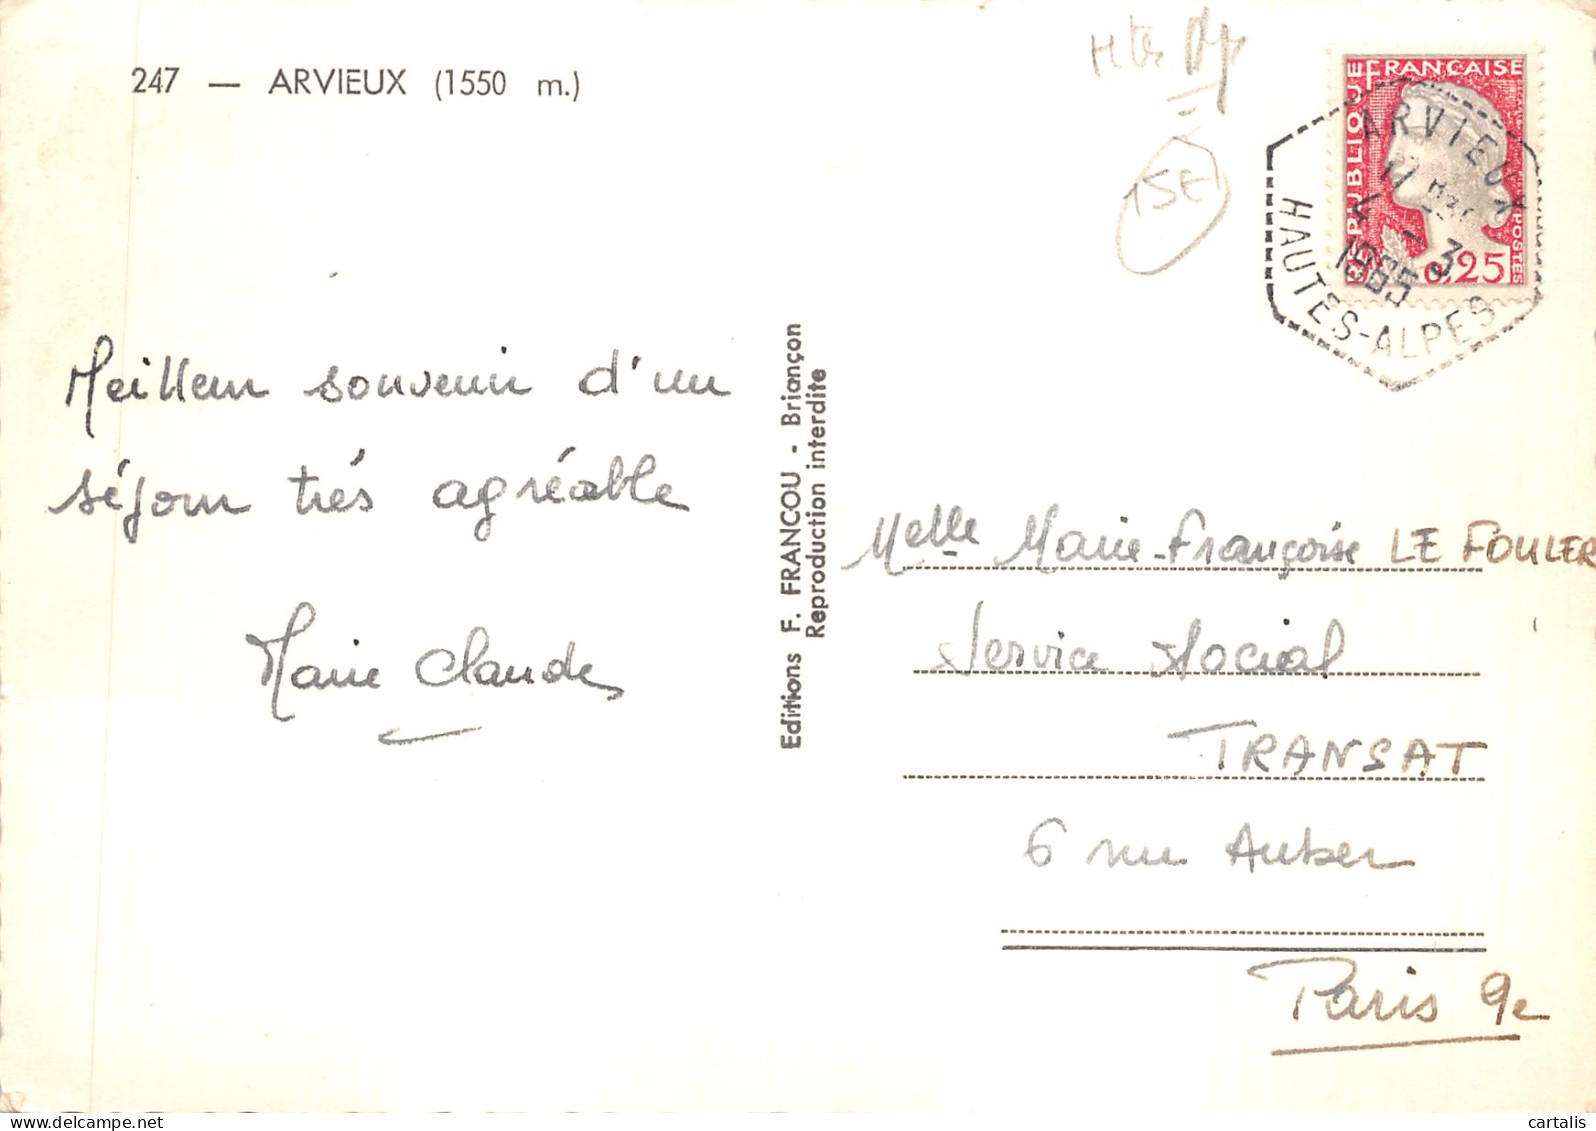 247 — ARVIEUX (1550 m.)
Hte
15E
REPUBLIQUE FRANCAISE
POSTES
0,25
ARVIEUX
17
1965
-3
HAUTES-ALPES
Meilleur souvenir d'un
séjour très agréable
Marie Claude
Editions F. FRANCOU - Briançon
Reproduction interdite
Melle Marie-Françoise LE FOULER
Service Social
TRANSAT
6 rue Auber
Paris 9e
cartalis